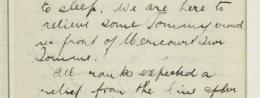 to sleep. We are here to
relieve some Tommy crowd
in front of Mericourt Sur
Somme.
All ranks expected a
relief from the line after